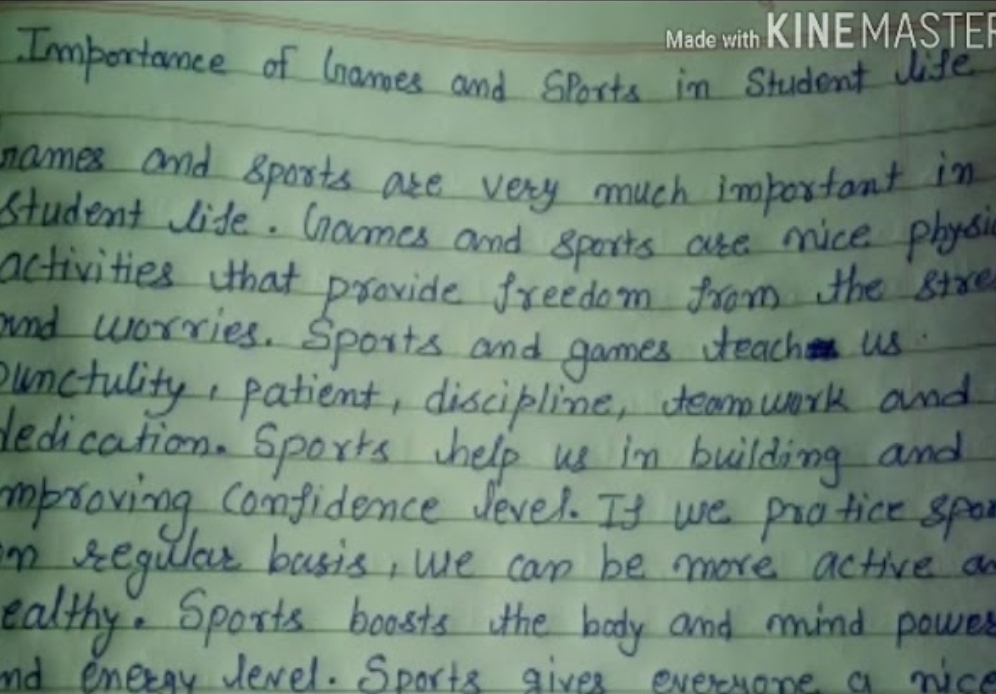 Made with KINEMASTER
Importance of Games and Sports in Student life
names and sports are very much important in
student life. Games and sports are nice physic
activities that provide freedom from the stre
and worries. Sports and games teach us
punctulity, patient, discipline, teamwork and
dedication. Sports help us in building and
mproving confidence level. If we pratice spor
on regular basis, we can be more active an
ealthy. Sports boosts the body and mind power
nd energy level. Sports gives everyone a nice